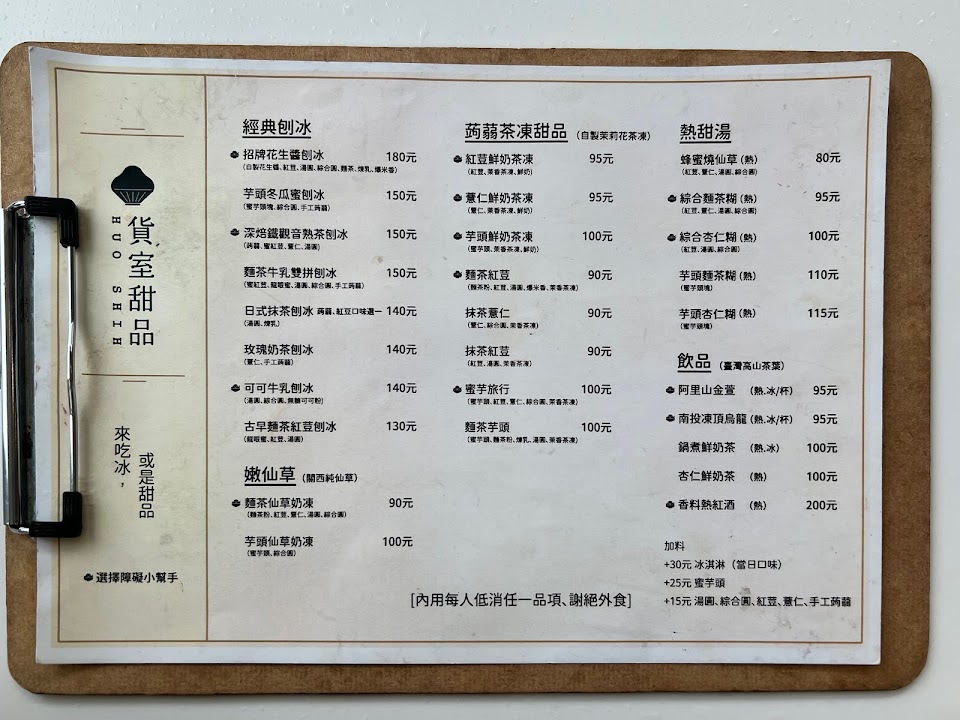 貨室甜品
HUO SHIH
來吃冰，
或是甜品
選擇障礙小幫手
經典刨冰
招牌花生醬刨冰 180元
(自製花生醬、紅荳、湯圓、綜合圓、麵茶、煉乳、爆米香)
芋頭冬瓜蜜刨冰 150元
(蜜芋頭塊、綜合圓、手工蒟蒻)
深焙鐵觀音熟茶刨冰 150元
(蒟蒻、蜜紅荳、薏仁、湯圓)
麵茶牛乳雙拼刨冰 150元
(蜜紅荳、龍眼蜜、湯圓、綜合圓、手工蒟蒻)
日式抹茶刨冰 蒟蒻、紅豆口味選一 140元
(湯圓、煉乳)
玫瑰奶茶刨冰 140元
(薏仁、手工蒟蒻)
可可牛乳刨冰 140元
(湯圓、綜合圓、無糖可可粉)
古早麵茶紅荳刨冰 130元
(龍眼蜜、紅荳、湯圓)
嫩仙草 (關西純仙草)
麵茶仙草奶凍 90元
(麵茶粉、紅荳、薏仁、湯圓、綜合圓)
芋頭仙草奶凍 100元
(蜜芋頭、綜合圓)
蒟蒻茶凍甜品 (自製茉莉花茶凍)
紅荳鮮奶茶凍 95元
(紅荳、茉香茶凍、鮮奶)
薏仁鮮奶茶凍 95元
(薏仁、茉香茶凍、鮮奶)
芋頭鮮奶茶凍 100元
(蜜芋頭、茉香茶凍、鮮奶)
麵茶紅荳 90元
(麵茶粉、紅荳、湯圓、爆米香、茉香茶凍)
抹茶薏仁 90元
(薏仁、綜合圓、茉香茶凍)
抹茶紅荳 90元
(紅荳、湯圓、茉香茶凍)
蜜芋旅行 100元
(蜜芋頭、紅荳、薏仁、綜合圓、茉香茶凍)
麵茶芋頭 100元
(蜜芋頭、麵茶粉、煉乳、湯圓、茉香茶凍)
[內用每人低消任一品項、謝絕外食]
熱甜湯
蜂蜜燒仙草 (熱) 80元
(紅荳、薏仁、湯圓、綜合圓)
綜合麵茶糊 (熱) 95元
(紅荳、薏仁、湯圓、綜合圓)
綜合杏仁糊 (熱) 100元
(紅荳、湯圓、綜合圓)
芋頭麵茶糊 (熱) 110元
(蜜芋頭塊)
芋頭杏仁糊 (熱) 115元
(蜜芋頭塊)
飲品 (臺灣高山茶葉)
阿里山金萱 (熱.冰/杯) 95元
南投凍頂烏龍 (熱.冰/杯) 95元
鍋煮鮮奶茶 (熱.冰) 100元
杏仁鮮奶茶 (熱) 100元
香料熱紅酒 (熱) 200元
加料
+30元 冰淇淋（當日口味）
+25元 蜜芋頭
+15元 湯圓、綜合圓、紅荳、薏仁、手工蒟蒻